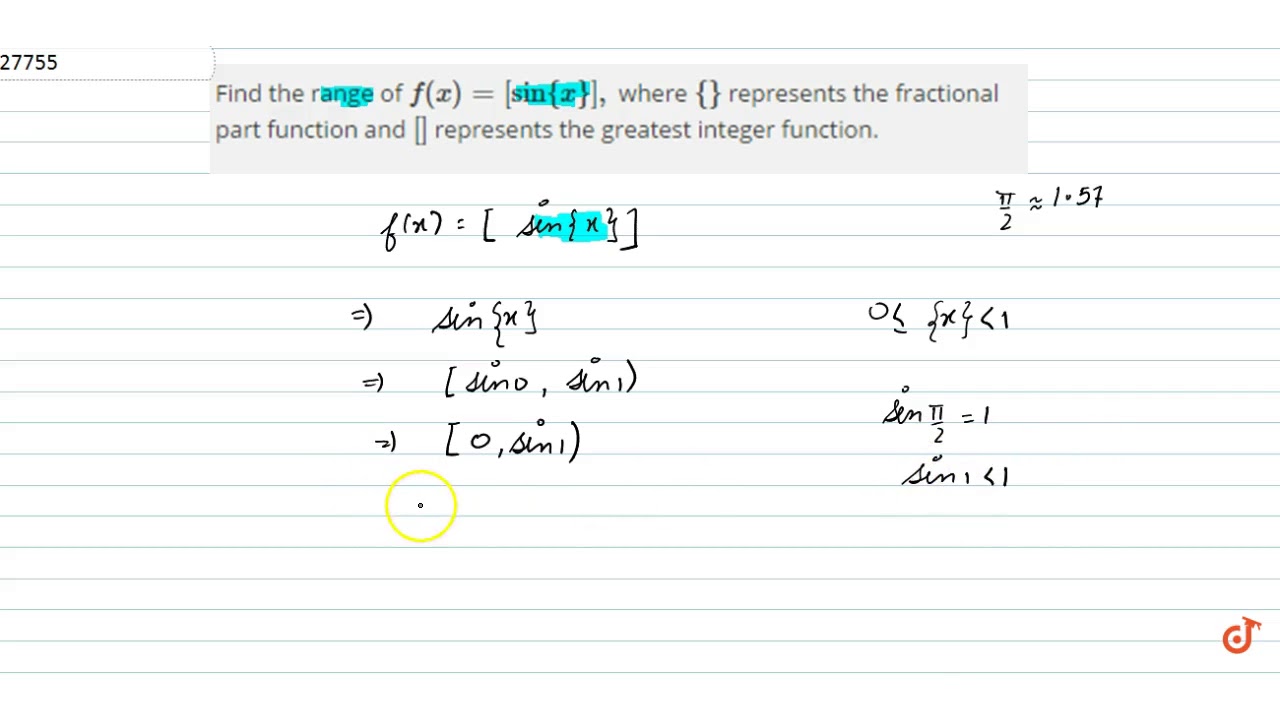 27755
Find the range of f(x) = [sin{x}], where {} represents the fractional
part function and [] represents the greatest integer function.
π/2 ≈ 1.57
f(x) = [ sin{x} ]
=> sin{x}
0 ≤ {x} < 1
=> [ sin0, sin1 )
sin π/2 = 1
=> [ 0, sin1 )
sin1 < 1